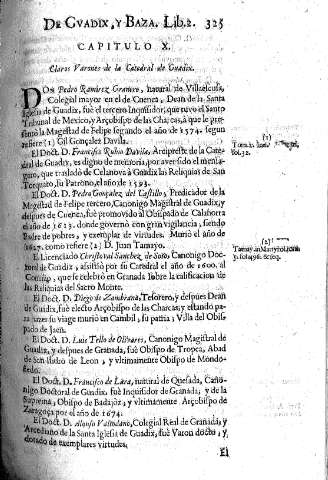 DE GVADIX, Y BAZA. Lib.2. 325
CAPITULO X.
Claros Varones de la Catedral de Guadix.
DON Pedro Ramirez Granero, natural de Villaescusa,
Colegial mayor en el de Cuenca, Dean de la Santa
Iglesia de Guadix, fuè el tercero Inquisidor, que tuvo el Santo
Tribunal de Mexico, y Arçobispo de las Charcas, à que le pre-
sentò la Magestad de Felipe segundo el año de 1574. segun
refiere (1) Gil Gonçalez Davila.
El Doct. D. Francisco Rubio Davila, Arcipreste de la Cate-
dral de Guadix, es digno de memoria, por aver sido el mensa-
gero, que trasladò de Celanova à Guadix las Reliquias de San
Torquato, su Patrono, el año de 1593.
El Doct. D. Pedro Gonçalez del Castillo, Predicador de la
Magestad de Felipe tercero, Canonigo Magistral de Guadix, y
despues de Cuenca, fuè promovido al Obispado de Calahorra
el año de 1613. donde governò con gran vigilancia, siendo
Padre de pobres, y exemplar de virtudes. Muriò el año de
1627. como refiere (2) D. Juan Tamayo.
El Licenciado Christoval Sanchez, de Soto, Canonigo Doc-
toral de Guadix, assistiò por su Catedral el año de 1600. al
Concilio, que se celebrò en Granada sobre la calificacion de
las Reliquias del Sacro Monte.
El Doct. D. Diego de Zambrana, Tesorero, y despues Dean
de Guadix, fuè electo Arçobispo de las Charcas, y estando pa-
ra hazer su viage muriò en Cambil, su patria, Villa del Obis-
pado de Jaen.
El Doct. D. Luis Tello de Olivares, Canonigo Magistral de
Guadix, y despues de Granada, fuè Obispo de Tropea, Abad
de San Isidro de Leon, y vltimamente Obispo de Mondo-
ñedo.
El Doct. D. Francisco de Lara, natural de Quesada, Cano-
nigo Doctoral de Guadix, fuè Inquisidor de Granada, y de la
Suprema, Obispo de Badajoz, y vltimamente Arçobispo de
Zaragoça por el año de 1674.
El Doct. D. Alonso Vastidano, Colegial Real de Granada, y
Arcediano de la Santa Iglesia de Guadix, fuè Varon docto, y
dotado de exemplares virtudes.
El
(1)
(2)